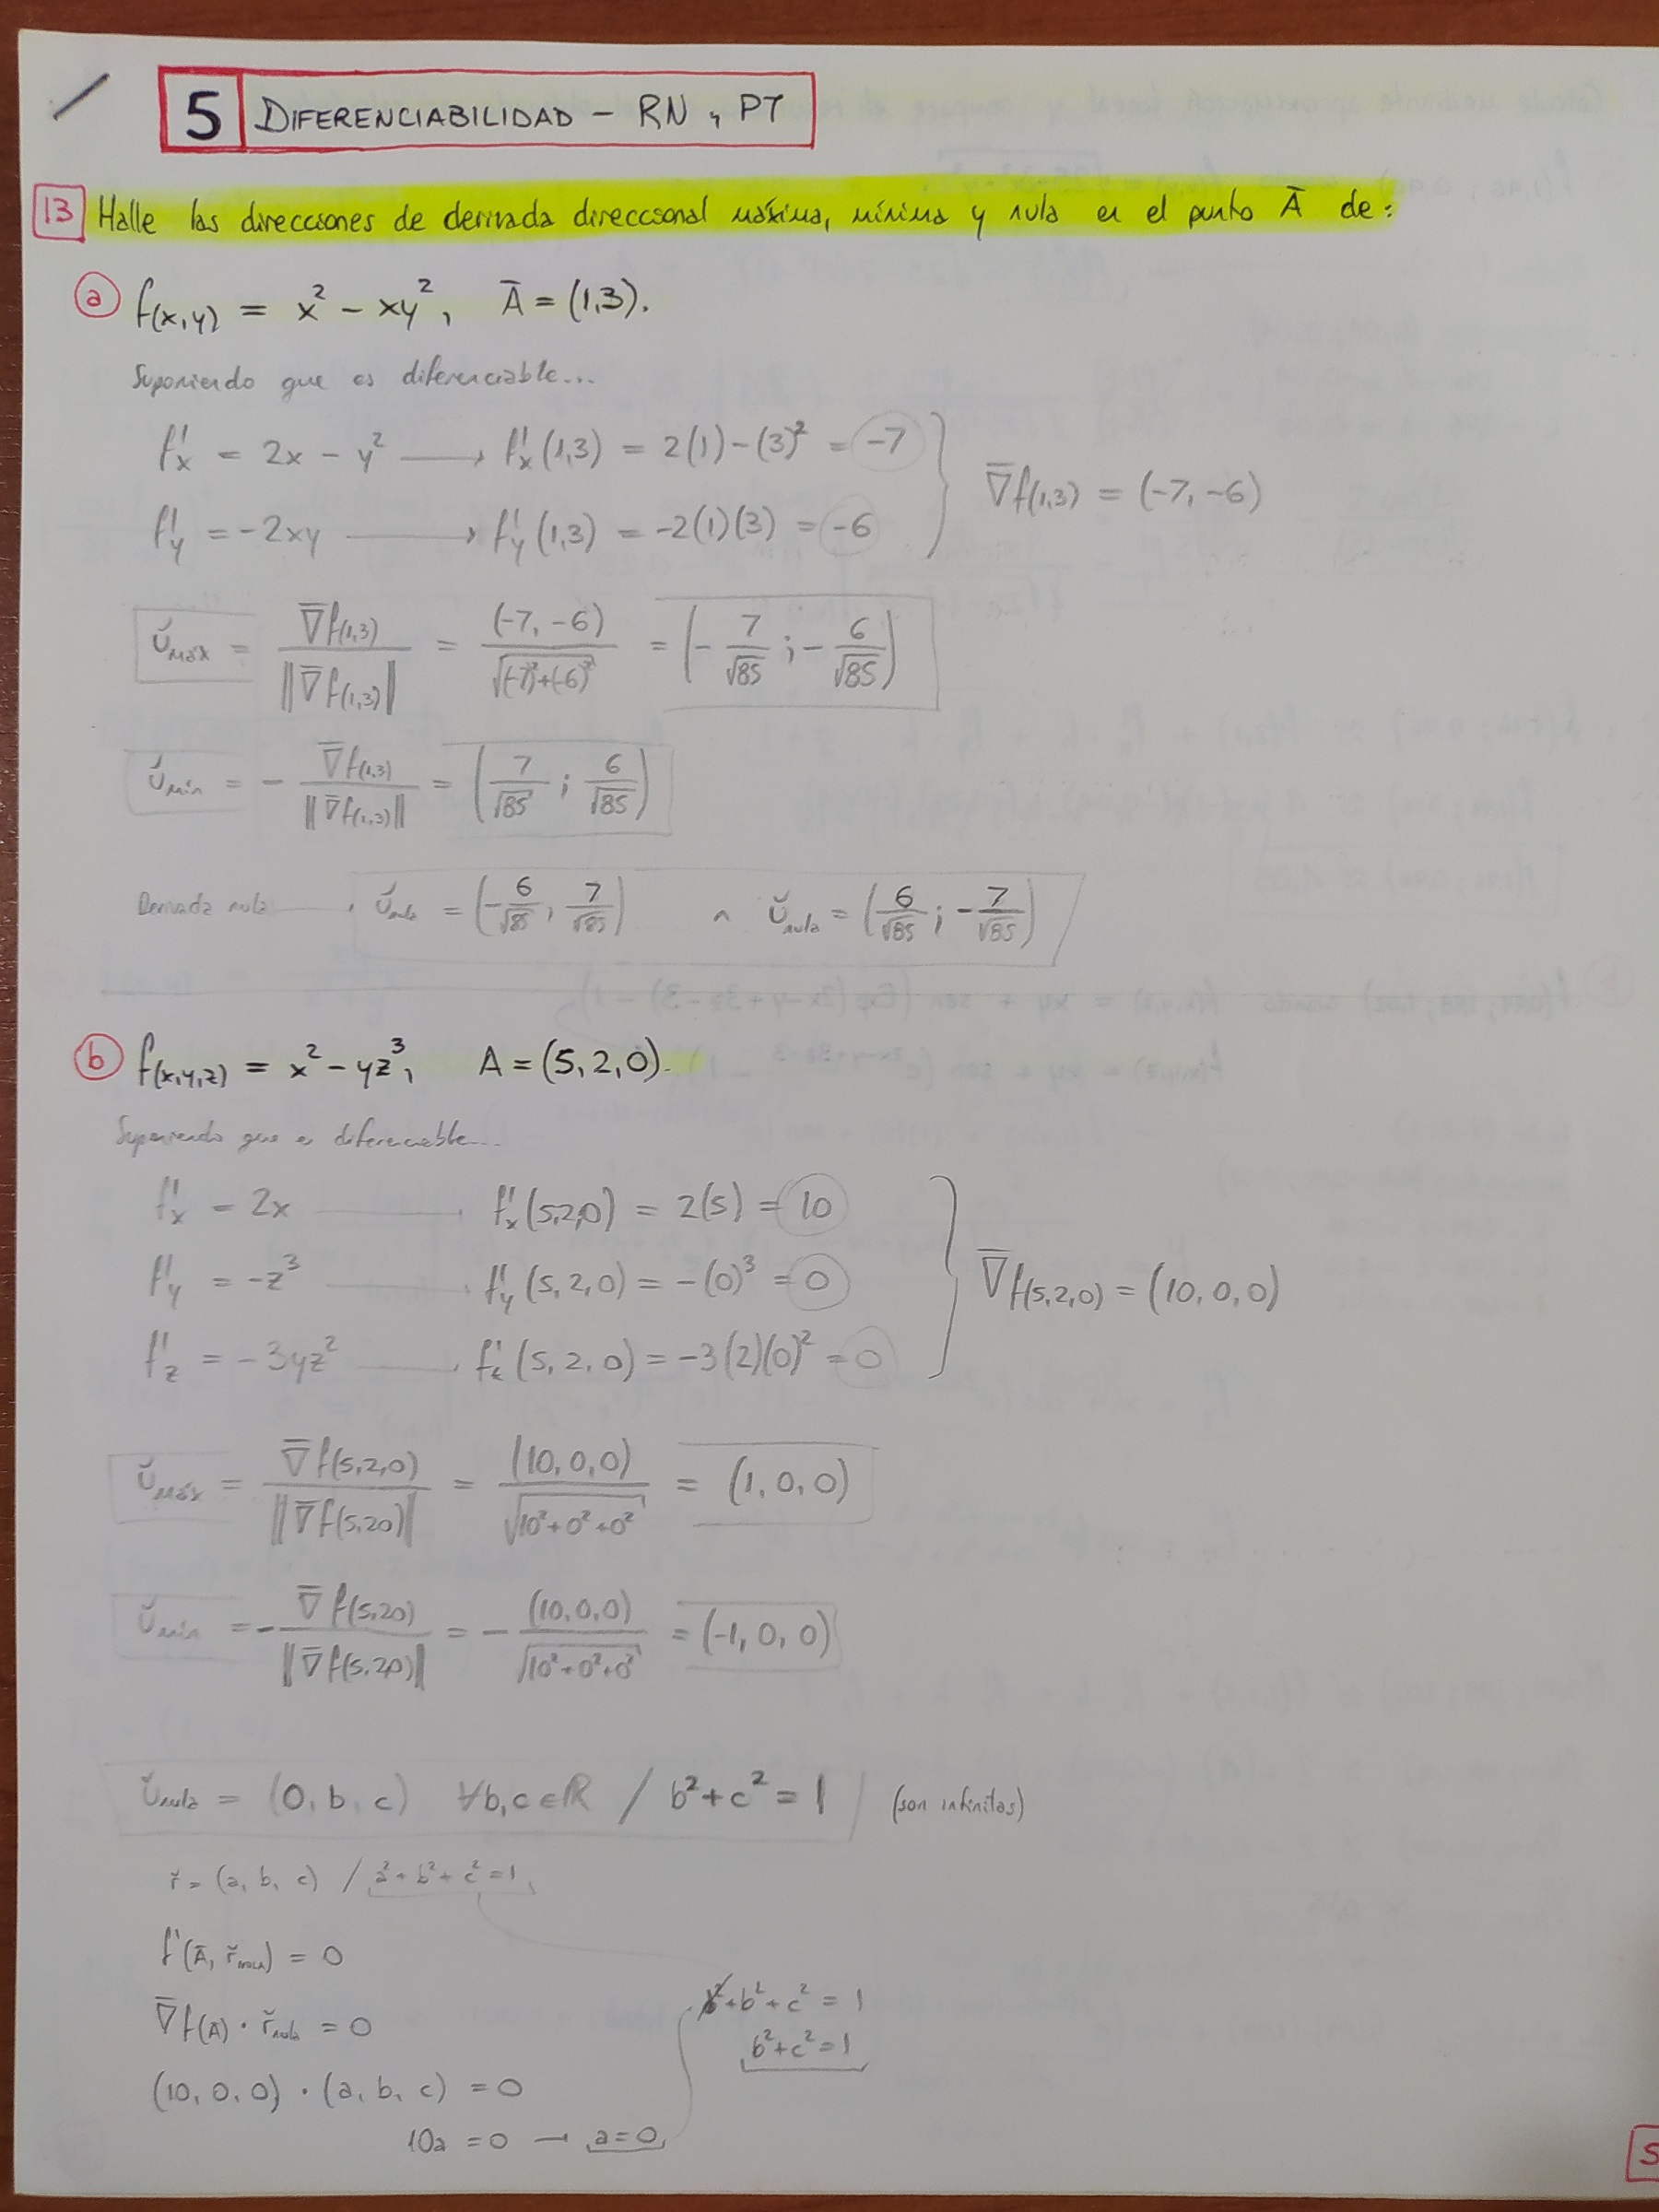 5 DIFERENCIABILIDAD – RN y PT
13 Halle las direcciones de derivada direccional máxima, mínima y nula en el punto Ā de:
a f(x,y) = x² – xy², Ā = (1,3).
Suponiendo que es diferenciable...
f'x = 2x – y² → f'x (1,3) = 2(1) – (3)² = -7
f'y = -2xy → f'y (1,3) = -2(1)(3) = -6
∇̄f(1,3) = (-7, -6)
ŭmáx = ∇̄f(1,3) / ||∇̄f(1,3)|| = (-7, -6) / √((-7)²+(-6)²) = (- 7/√85 ; - 6/√85)
ŭmín = - ∇̄f(1,3) / ||∇̄f(1,3)|| = (7/√85 ; 6/√85)
Derivada nula → ŭnula = (-6/√85, 7/√85) ∧ ŭnula = (6/√85 ; -7/√85)
b f(x,y,z) = x² – yz³, A = (5,2,0).
Suponiendo que es diferenciable...
f'x = 2x → f'x (5,2,0) = 2(5) = 10
f'y = -z³ → f'y (5,2,0) = -(0)³ = 0
f'z = -3yz² → f'z (5,2,0) = -3(2)(0)² = 0
∇̄f(5,2,0) = (10,0,0)
ŭmáx = ∇̄f(5,2,0) / ||∇̄f(5,2,0)|| = (10,0,0) / √(10²+0²+0²) = (1,0,0)
ŭmín = - ∇̄f(5,2,0) / ||∇̄f(5,2,0)|| = - (10,0,0) / √(10²+0²+0²) = (-1,0,0)
ŭnula = (0,b,c) ∀b,c∈ℝ / b²+c² = 1 (son infinitas)
ř = (a, b, c) / a²+b²+c²=1
f'(Ā, řnula) = 0
∇̄f(Ā) · řnula = 0
(10,0,0) · (a,b,c) = 0
10a = 0 → a=0
+b²+c² = 1
b²+c² = 1